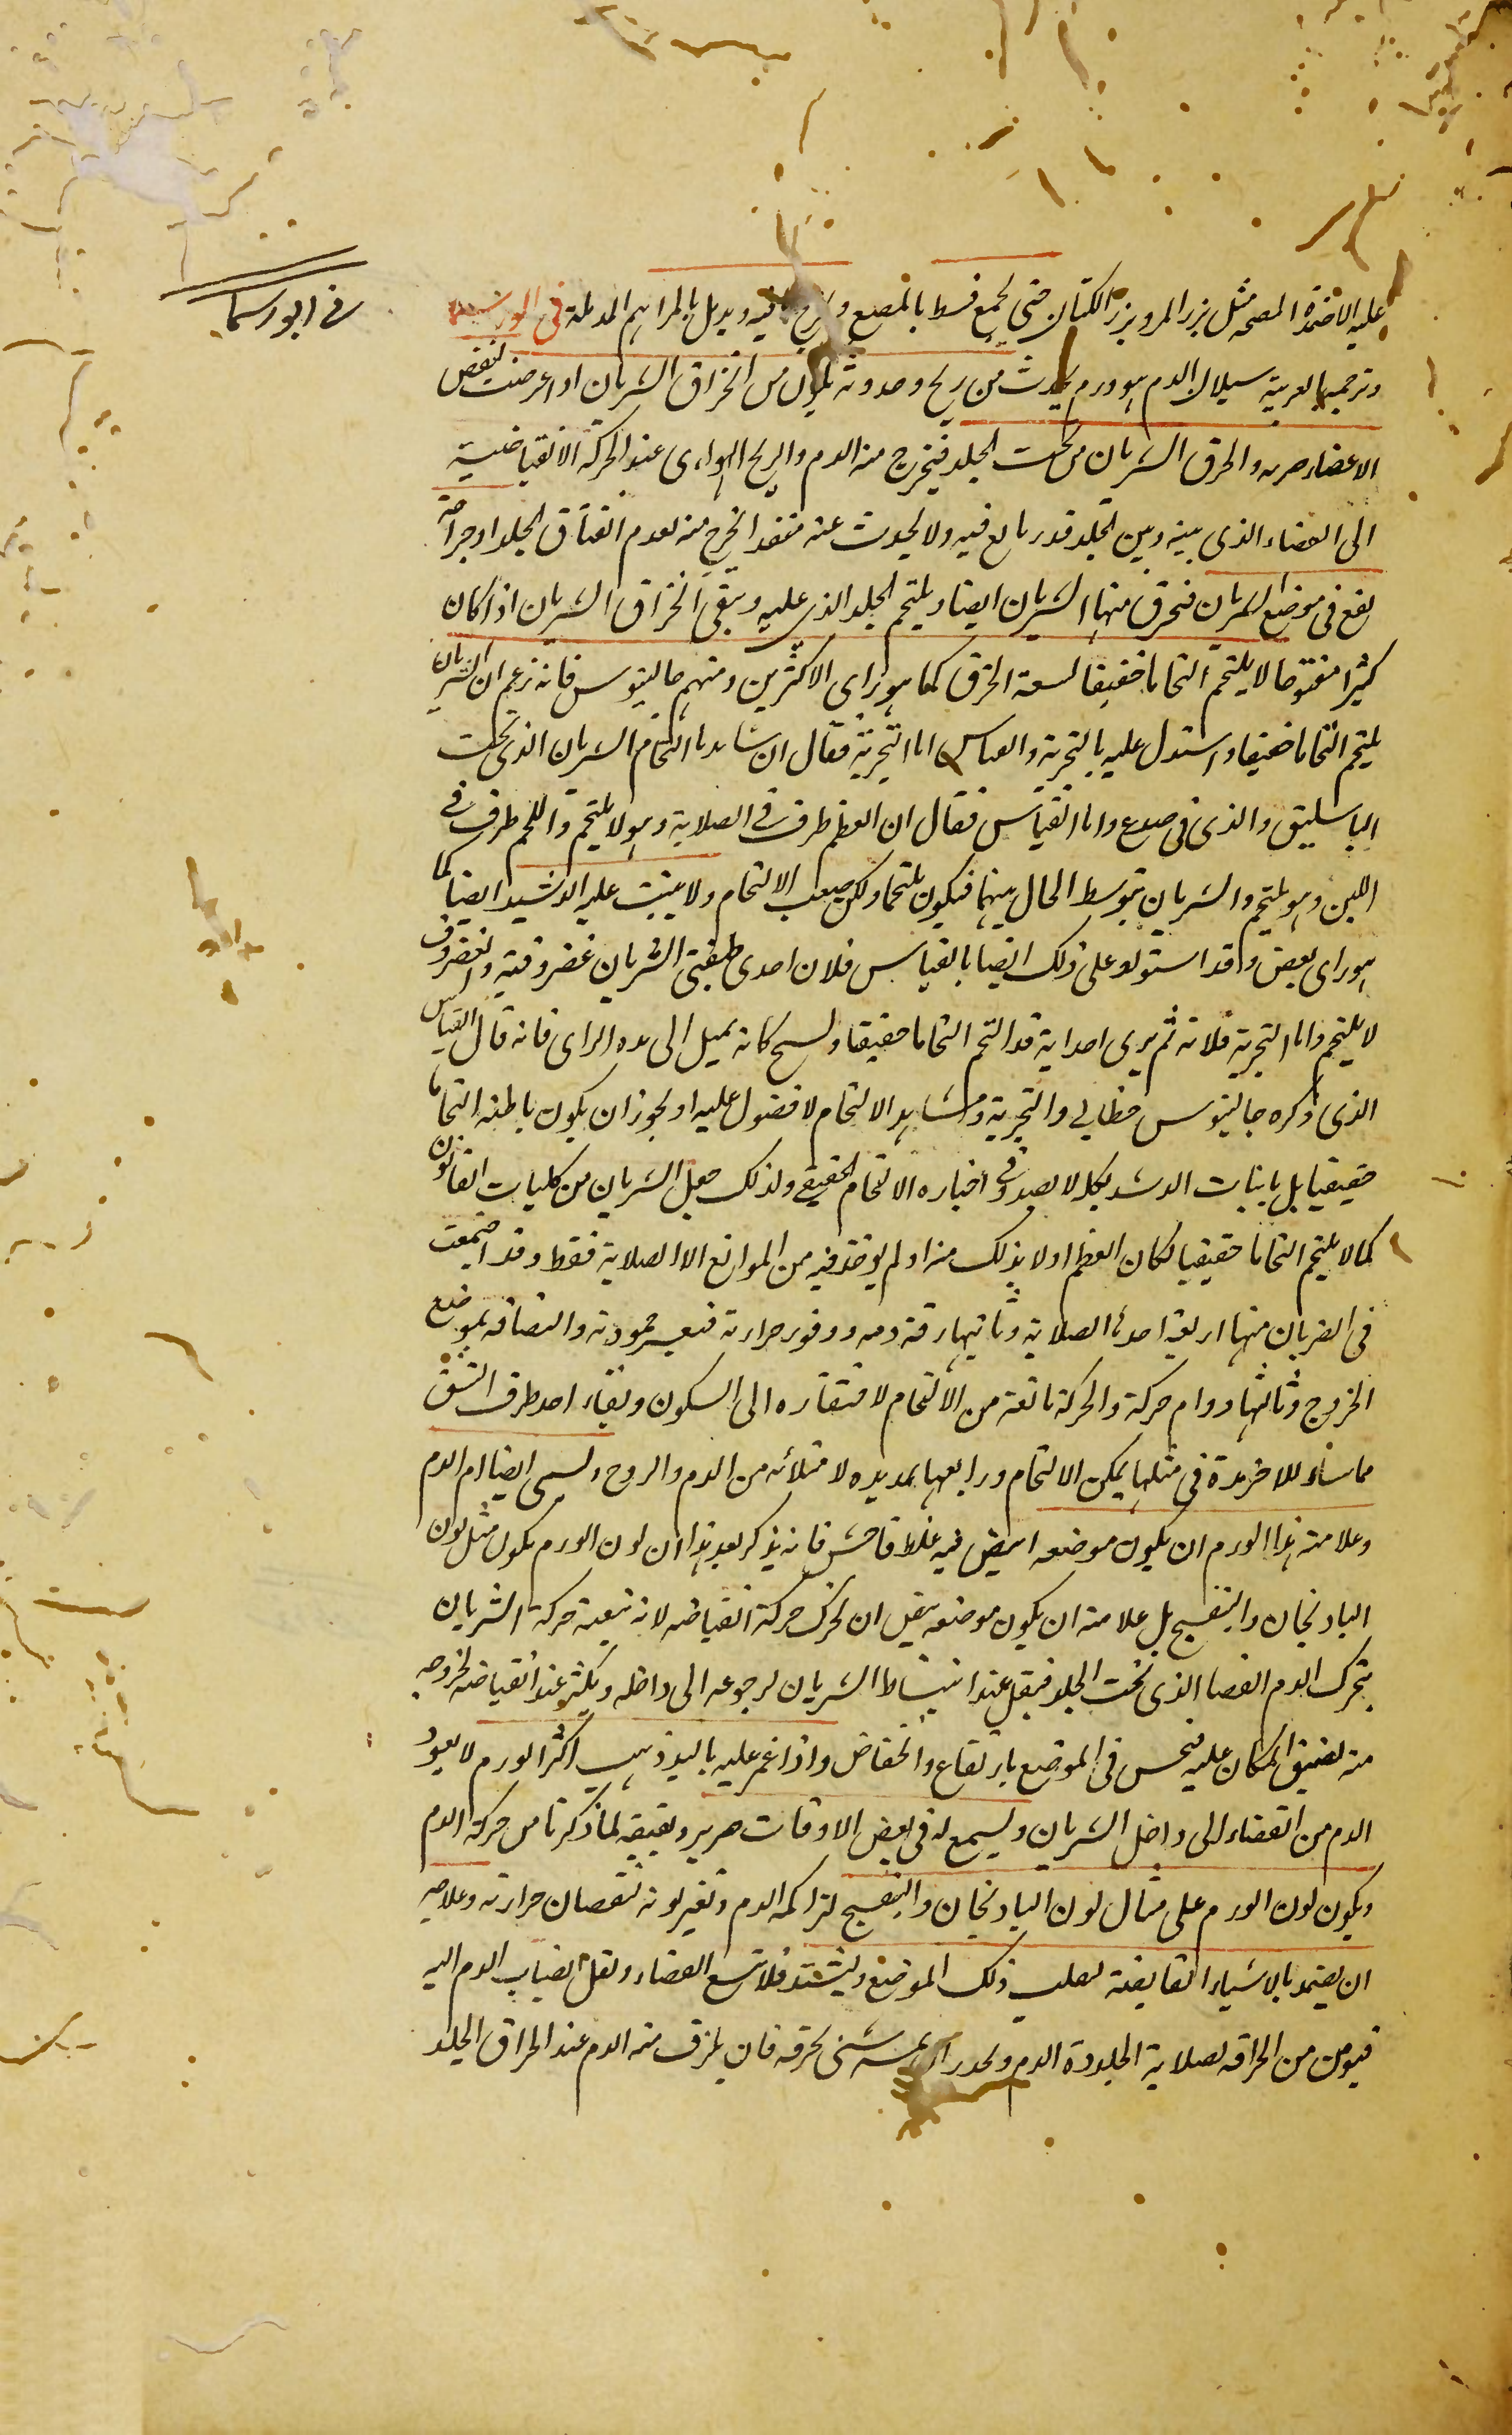 في ابورسما
عليه الاضمدة المنضجة مثل بزر المرو بزر الكتان حتى يجمع فبط بالمبضع ويخرج ما فيه ويدمل بالمراهم المدملة في ابورسما
وترجمتها بالعربية سيلان الدم هو ورم يحدث من ريح وحدوثه يكون من انخراق الشريان اذا عرضت لبعض
الاعضاء ضربة وانخرق الشريان من تحت الجلد فيخرج منه الدم والريح الهوائى عند الحركة الانقباضية
الى الفضاء الذى بينه وبين الجلد قدر ما يسع فيه ولا يحدث عنه منفذ الخرج منه لعدم انفتاق الجلد او جراحة
يقع فى موضع الشريان فتخرق منها الشريان ايضا ويلتحم الجلد الذى عليه ويبقى انخراق الشريان اذا كان
كثيرا مفتوحا لا يلتحم التحاما حقيقيا لسعة الخرق كما هو راى الاكثرين ومنهم جالينوس فانه زعم ان الشريان
يلتحم التحاما ضعيفا واستدل عليه بالتجربة والقياس اما التجربة فقال ان شاهدنا التحام الشريان الذى تحت
الباسليق والذى فى صدغ واما القياس فقال ان العظم طرف فى الصلابة وهو لا يلتحم واللحم طرف فى
اللين وهو يلتحم والشريان متوسط الحال بينهما فيكون ملتحما ولكن صعب الالتحام ولا ينبت عليه الدشبد ايضا كما
هو راى بعض وقد استدلو على ذلك ايضا بالقياس فلان احدى طبقتى الشريان غضروفية والغضروف
لا يلتحم واما التجربة فلانه لم يرى احد انه قد التحم التحاما حقيقيا والشيخ كانه يميل الى هذه الراى فانه قال القياس
الذى ذكره جالينوس خطابى والتجربة ومشاهد الالتحام لا فضول عليه او يجوز ان يكون ما ظنه التحاما
حقيقيا بل بانبات الدشبد لكنه لا يصدق فى اخباره الالتحام الحقيقى ولذلك جعل الشريان من كليات القانون
كما لا يلتحم التحاما حقيقيا لكان العظم اولا بذلك منه اذ لم يوجد فيه من الموانع الا الصلابة فقط وقد اجتمعت
فى الشريان منها اربعة احدها الصلابة وثانيها رقة دمه ووفور حرارته فتعسر جمودته والتصاقه بموضع
الخروج وثالثها دوام حركة والحركة مانعة من الالتحام لافتقاره الى السكون وبقاء احد طرفى الشق
مماسا للاخر مدة فى مثلها يمكن الالتحام ورابعها تمديده لامتلائه من الدم والروح ويسمى ايضا ام الدم
وعلامة هذا الورم ان يكون موضعه ابيض فيه غلط فاحش فانه يذكر بعد هذا ان لون الورم يكون مثل لون
البادنجان والبنفسج بل علامته ان يكون موضعه ثقيل ان تحرك حركة انقباضه لانه تبعية حركة الشريان
يتحرك الدم الفضا الذى تحت الجلد فيقل عند انبساط الشريان لرجوعه الى داخله ويكثر عند انقباضه لخروجه
منه لضيق المكان عليه فيحس فى الموضع بارتفاع وانخفاض واذا غمز عليه باليد ذهب اكثر الورم لا يعود
الدم من الفضاء الى داخل الشريان ويسمع له فى بعض الاوقات صرير وبقبقة لما ذكرنا من حركة الدم
ويكون لون الورم على مثال لون البادنجان والبنفسج لتراكمه الدم وتغير لونه لنقصان حرارته وعلاجه
ان يضمد بالاشياء القابضة لصلب ذلك الموضع ويشتد فلا تتسع الفضاء ويقل انصباب الدم اليه
فيومن من انخراقه لصلابة الجلد ودة الدم ويحذر ان يمسه شئ يخرقه فان ينزف منه الدم عند انخراق الجلد